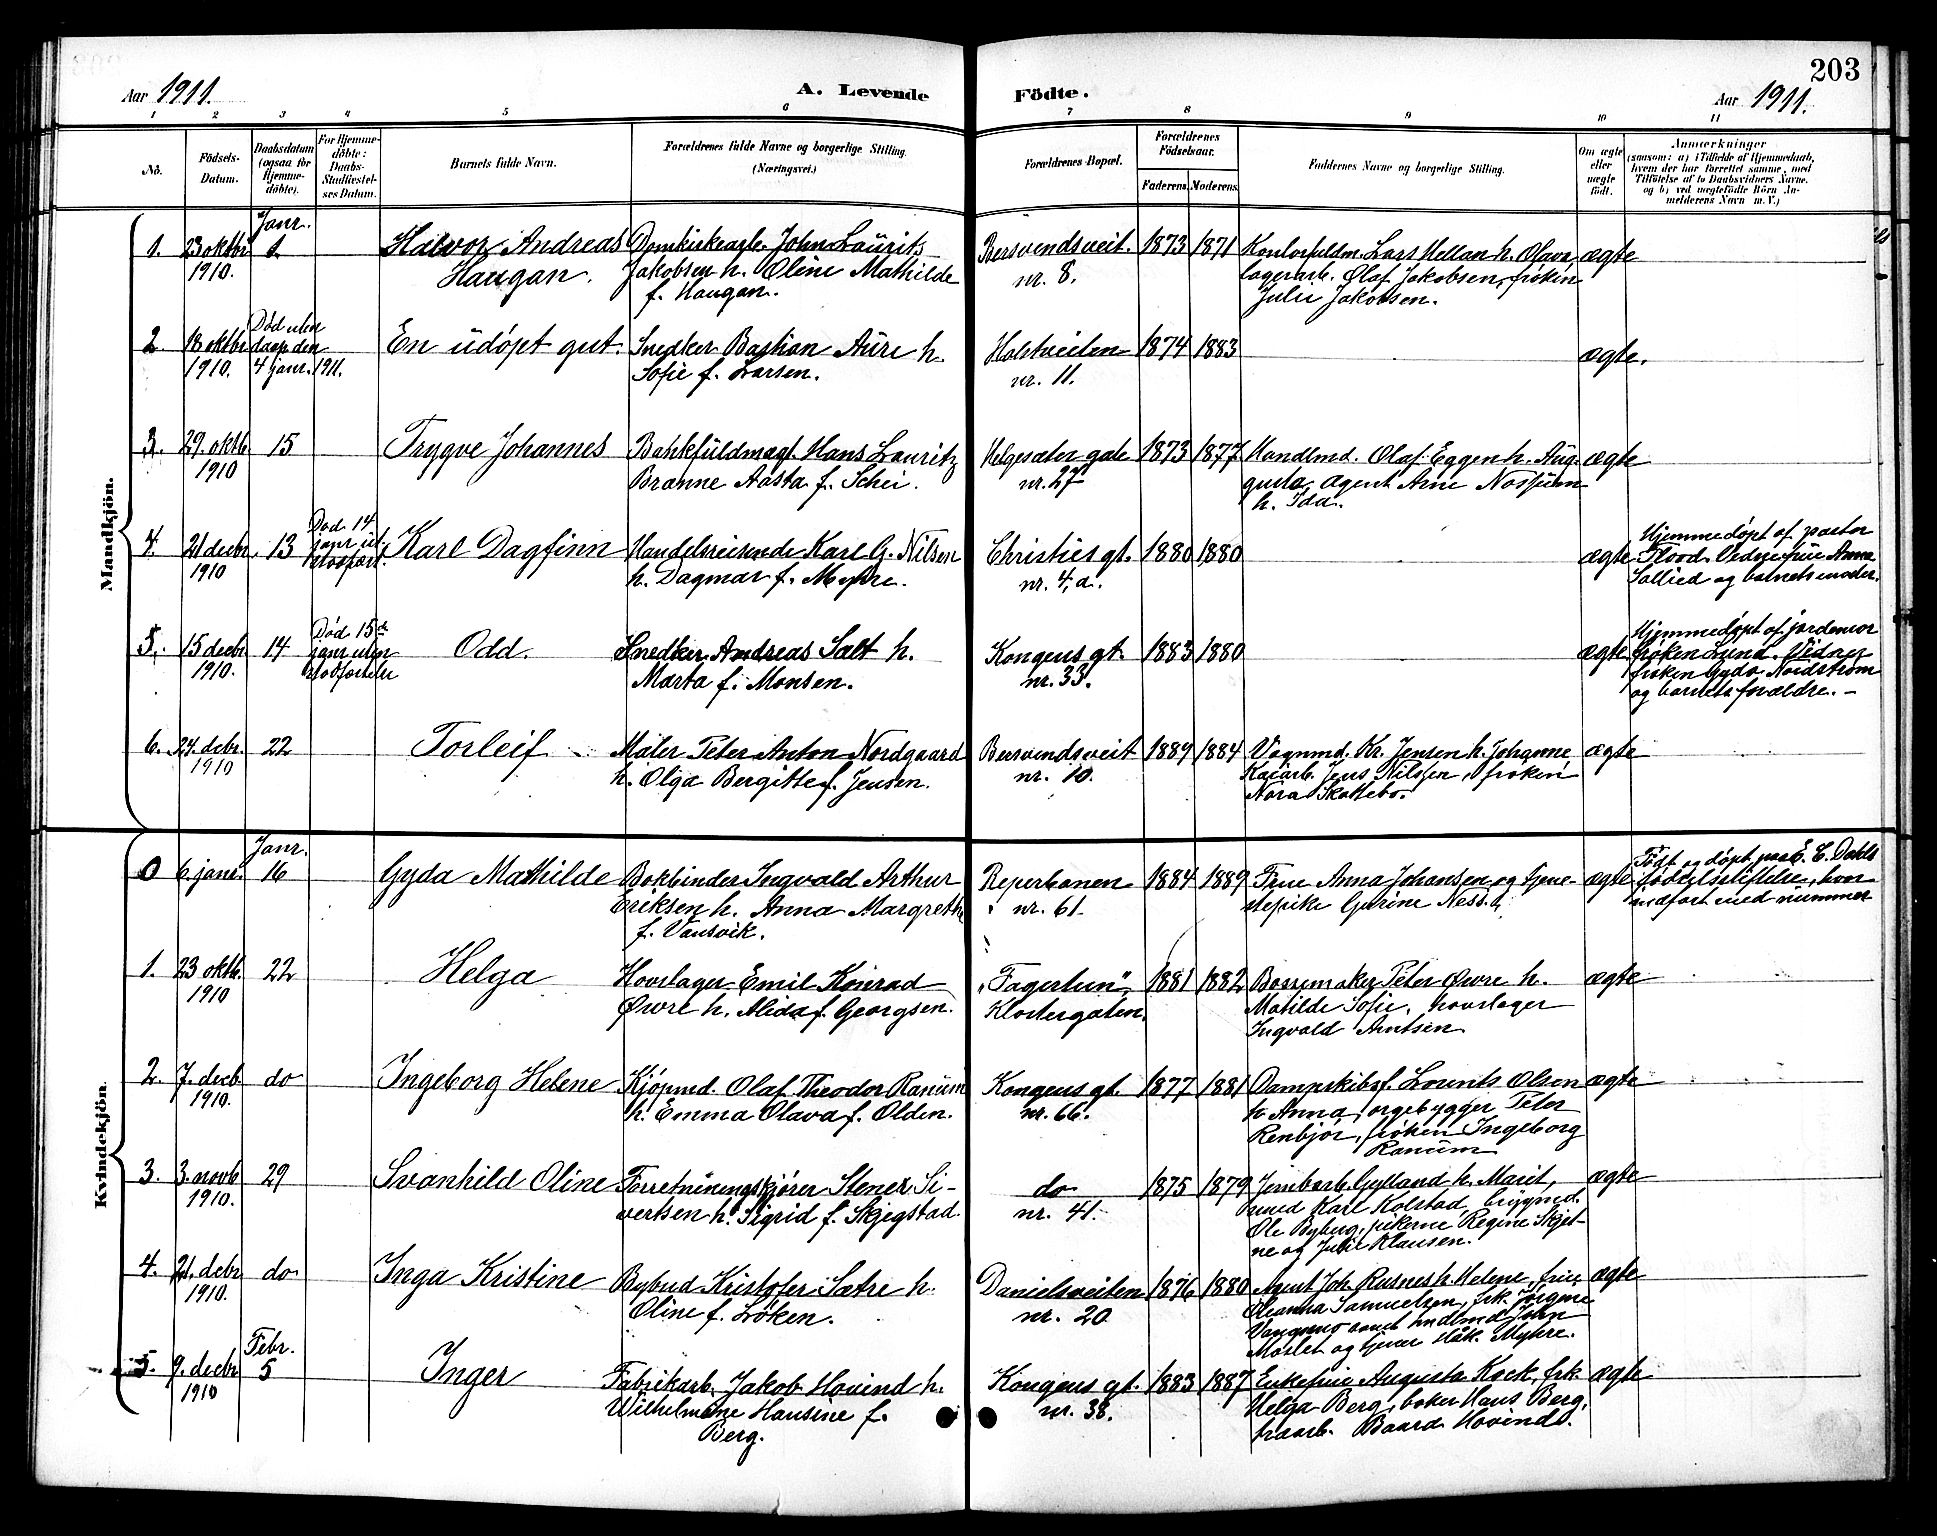 203
Aar 1911.
A. Levende
Födte.
Aar 1911.
1 2 3 4 5 6 7 8 9 10 11
No.
Födsels-
Datum.
Daabsdatum
(ogsaa for
Hjemme-
döbte).
For Hjemme-
döbte:
Daabs-
Stadfæstel-
ses Datum.
Barnets fulde Navn.
Forældrenes fulde Navne og borgerlige Stilling.
(Næringsvei.)
Forældrenes Bopæl.
Forældrenes
Födselsaar.
Faderens. Moderens.
Faddernes Navne og borgerlige Stilling.
Om ægte
eller
uægte
födt.
Anmærkninger
(saasom: a) i Tilfælde af Hjemmedaab,
hvem der har forrettet samme, med
Tilföielse af to Daabsvidners Navne,
og b) ved uegtefödte Börn An-
melderens Navn m. V.)
Mandkjön.
Janr.
1. 23 oktbr 1. Halvor Andreas Domkirkearb. John Laurits Bersvendsveit. 1873 1871 Kontorfuldm. Lars Hellan h. Olava ægte
1910. Haugan. Jakobsen h. Oline Mathilde nr. 8. lagerarb. Olaf Jakobsen, frøken
f. Haugan. Julie Jakobsen.
Død uten
2. 18 oktbr daap den En udøpt gut. Snedker Bastian Aure h. Holstveiten 1874 1883 ægte.
1910. 4 janr. 1911. Sofie f. Larsen. nr. 11.
3. 29. oktb 15 Trygve Johannes Bankfuldmægt. Hans Lauritz Helgesæter gate 1873 1877 Handlmd. Olaf Eggen h. Aug- ægte
1910 Branne Aasta f. Schei. nr. 27 gusta, agent Arne Nossum
h. Ida.
Død 14 Hjemmedøpt af pastor
4. 21 decbr. 13 janr ut. Karl Dagfinn Handelsreisende Karl G. Nilsen Christies gt. 1880 1880 ægte Flood. Vidner frue Anna
1910 h. Dagmar f. Myhre. nr. 4, a. Sollied og barnets moder.
Død 15de Hjemmedøpt af jordemor
5. 15 decbr 14 janr uten Odd. Snedker Andreas Salt h. Kongens gt. 1883 1880 ægte frøken Lund. Vidner
1910. stadfæstelse Marta f. Monsen. nr. 33. frøken Gyda Nordstrøm
og barnets forældre. —
6. 24. debr. 22 Torleif Maler Peter Anton Nordgaard Bersvendsveit 1889 1884 Vognmd. Kr. Jensen h. Johanne, ægte
1910 h. Olga Bergitte f. Jensen. nr. 10. Kaiarb. Jens Nilssen, frøken
Nora Skottebo.
Kvindekjön.
Janr.
0 6. janr. 16 Gyda Mathilde Bokbinder Ingvald Arthur Reperbanen 1884 1889 Frue Anna Johansen og tjene- ægte Født og døpt paa E. C. Dahls
Eriksen h. Anna Margrethe nr. 61. stepike Gurine Ness. fødselsstiftelse, hvor
f. Vansvik. indført med nummer
1. 23 oktb. 22 Helga Hovslager Emil Konrad "Fagerlun" 1881 1882 Bøssemaker Peter Øwre h. ægte
1910 Øwre h. Alida f. Georgsen. Klostergaten. Matilde Sofie, hovslager
Ingvald Arntsen.
2. 7. decb. do Ingeborg Helene Kjøpmd. Olaf Theodor Ranum Kongens gt. 1877 1881 Dampskibsf. Lounts Olsen ægte
1910. h. Emma Olava f. Olden. nr. 66. h. Anna, orgebygger Peter
Renbjør, frøken Ingeborg
Ranum
3. 3. novb 29 Svanhild Oline Forretningskjører Stener Si- do 1875 1879 Jernbarb. Gylland h. Marit, ægte
1910. vertsen h. Sigrid f. Skjegstad. nr. 41. Karl Kolstad, brygmd.
Ole Byberg, pikerne Regine Skjet-
ne og Julie Klausen.
4. 21. debr do Inga Kristine Bybud Kristofer Sætre h. Danielsveiten 1876 1880 Agent Joh. Rusnes h. Helene, frue ægte
1910. Oline f. Løken. nr. 20 Oleanna Samuelsen, frk. Jørgine
John
Moslet og Myhre.
Febr.
5. 9. decbr 5 Inger Fabrikarb. Jakob Hovind h. Kongens gt. 1883 1887 Enkefrue Augusta Kock, frk. ægte
1910 Wilhelmine Hansine f. nr. 38. Helga Berg, boker Hans Berg,
Berg. Baard Hovind.